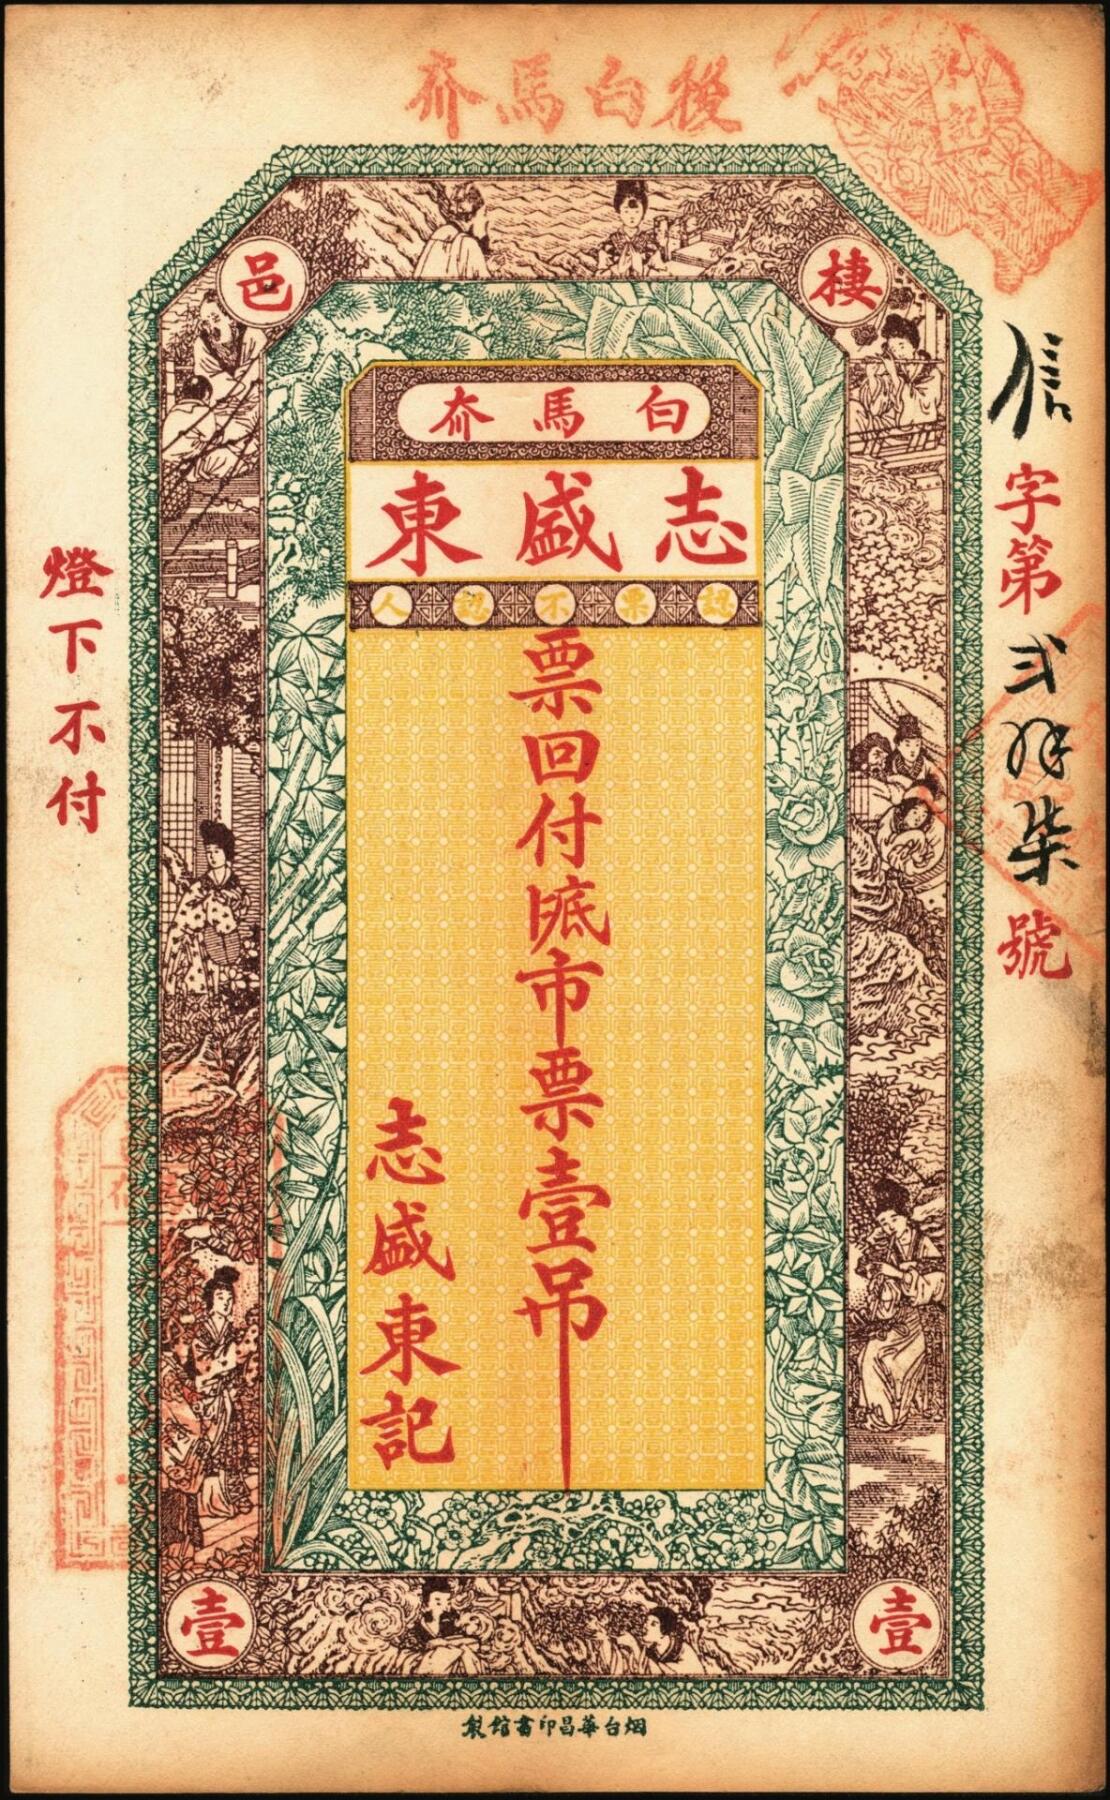 後白馬夼
棲邑
白馬夼
志盛東
認票不認人
票回付底市票壹吊
志盛東記
信字第弍拜柒號
燈下不付
壹
壹
烟台華昌印書館製